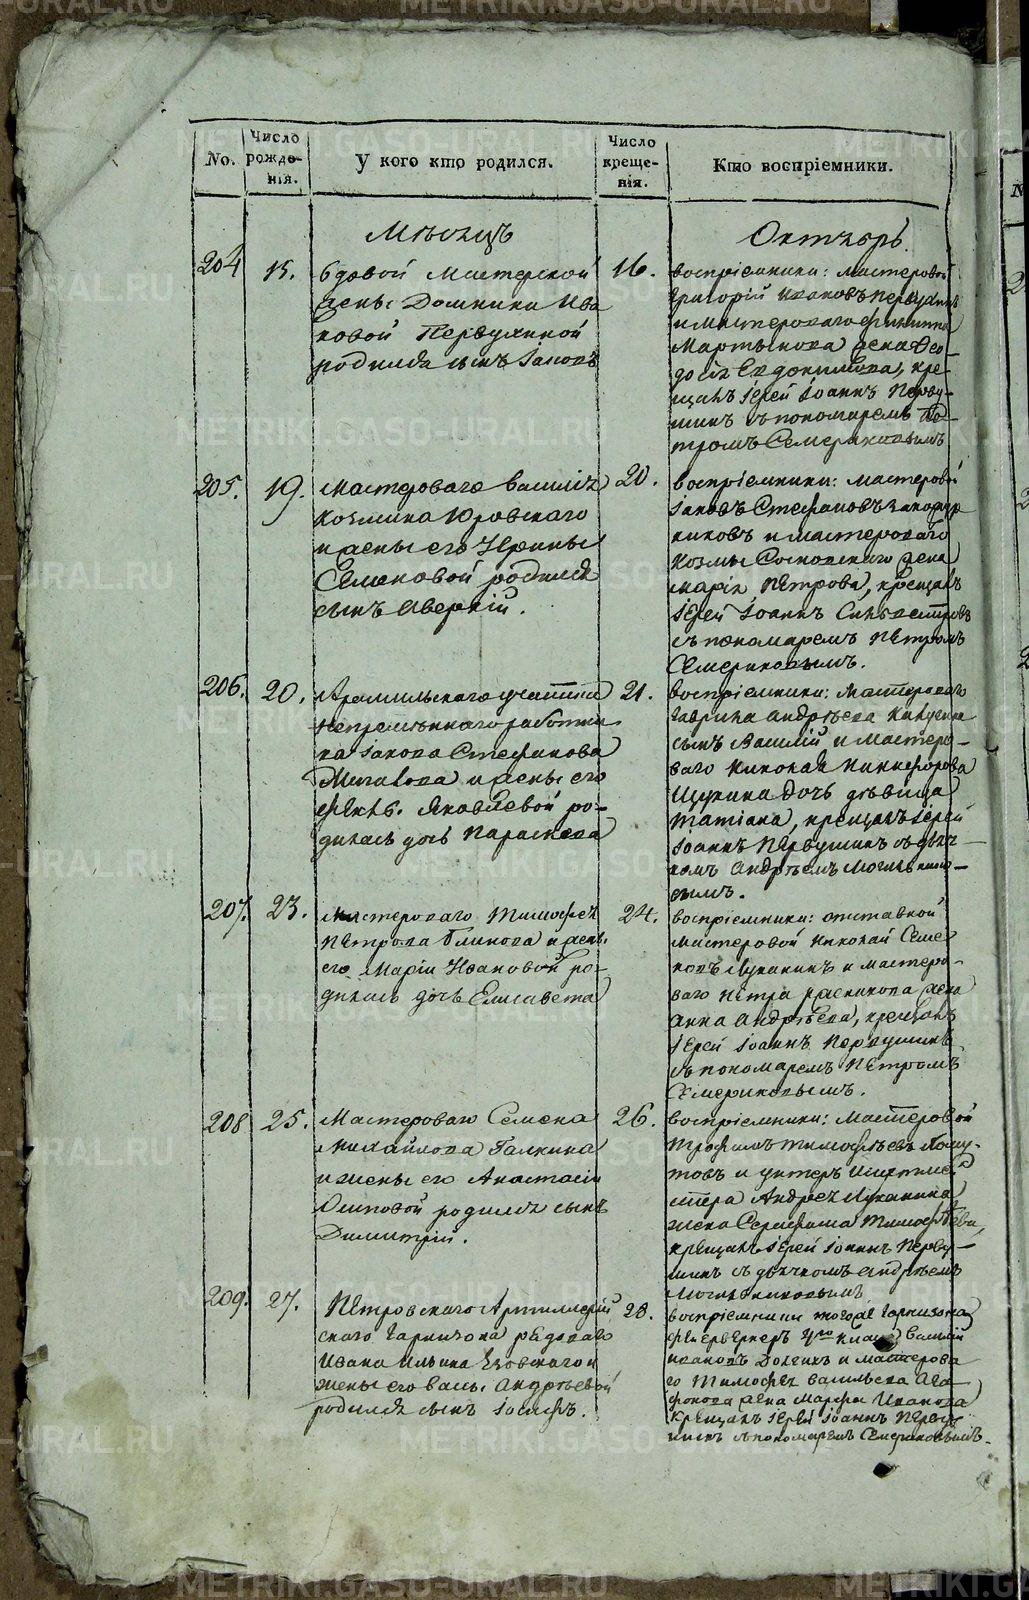 No.
Число рожде-нія.
У кого кто родился.
Число креще-нія.
Кто воспріемники.
Мѣсяцъ
Октябрь.
204
15.
вдовой Мастерской
жены Домники Ива
новой Первушиной
родился сынъ Іаковъ
16.
воспріемники: мастеровой
Григорій Ивановъ Первушинъ
и мастероваго Филиппа
Мартынова жена Ѳео-
досія Евдокимова, кре-
щалъ іерей Іоаннъ Перву-
шинъ съ пономаремъ Пе-
тромъ Семериковымъ
205.
19.
Мастероваго Василія
Козмина Юровского
и жены его Ирины
Семеновой родился
сынъ Аверкій.
20.
воспріемники: мастеровой
Іаковъ Стефановъ
никовъ и мастероваго
Козмы Сосновскаго жена
Марія Петрова, крещалъ
іерей Іоаннъ Сильвестровъ
съ пономаремъ Петромъ
Семериковымъ.
206.
20.
Арамильскаго участка
непремѣннаго работни
ка Іакова Стефанова
и жены его
Ѳеклы Яковлевой ро-
дилась дочь Параскева
21.
воспріемники: Мастероваго
Гаврила Андрѣева Кичигина
сынъ Василій и мастеро-
ваго Николая Никифорова
Щукина дочь дѣвица
Татіана, крещалъ іерей
Іоаннъ Первушинъ съ дьяч-
комъ Андрѣемъ Могильнико-
вымъ.
207.
23.
Мастероваго Тимофея
Петрова Блинова и жены
его Маріи Ивановой ро-
дилась дочь Елисавета
24.
воспріемники: отставной
мастеровой Николай Семе
новъ Луканинъ и мастеро-
ваго Петра жена
Анна Андрѣева, крещалъ
іерей Іоаннъ Первушинъ
съ пономаремъ Петромъ
Семериковымъ.
208
25.
Мастероваго Семена
Михайлова Галкина
и жены его Анастасіи
Осиповой родился сынъ
Димитрій.
26.
воспріемники: Мастеровой
Трофимъ Тимофѣевъ Хому-
товъ и унтеръ Шихтмей
стера Андрея Луканина
жена Серафима Тимофѣева,
крещалъ іерей Іоаннъ Перву-
шинъ съ дьячкомъ Андрѣемъ
Могильниковымъ
209.
27.
Петровскаго Артиллерій
скаго Гарнизона рядоваго
Ивана Ильина Езовскаго и
жены его Васы Андрѣевой
родился сынъ Іосифъ.
28.
воспріемники тогоже Гарнизона
Феерверкеръ 4го класа Василій
Ивановъ Долгихъ и мастерова
го Тимофея Васильева Ага
фонова жена Марфа Иванова
крещалъ іерей Іоаннъ Перву
шинъ съ пономаремъ Семериковымъ.
METRIKI.GASO-URAL.RU